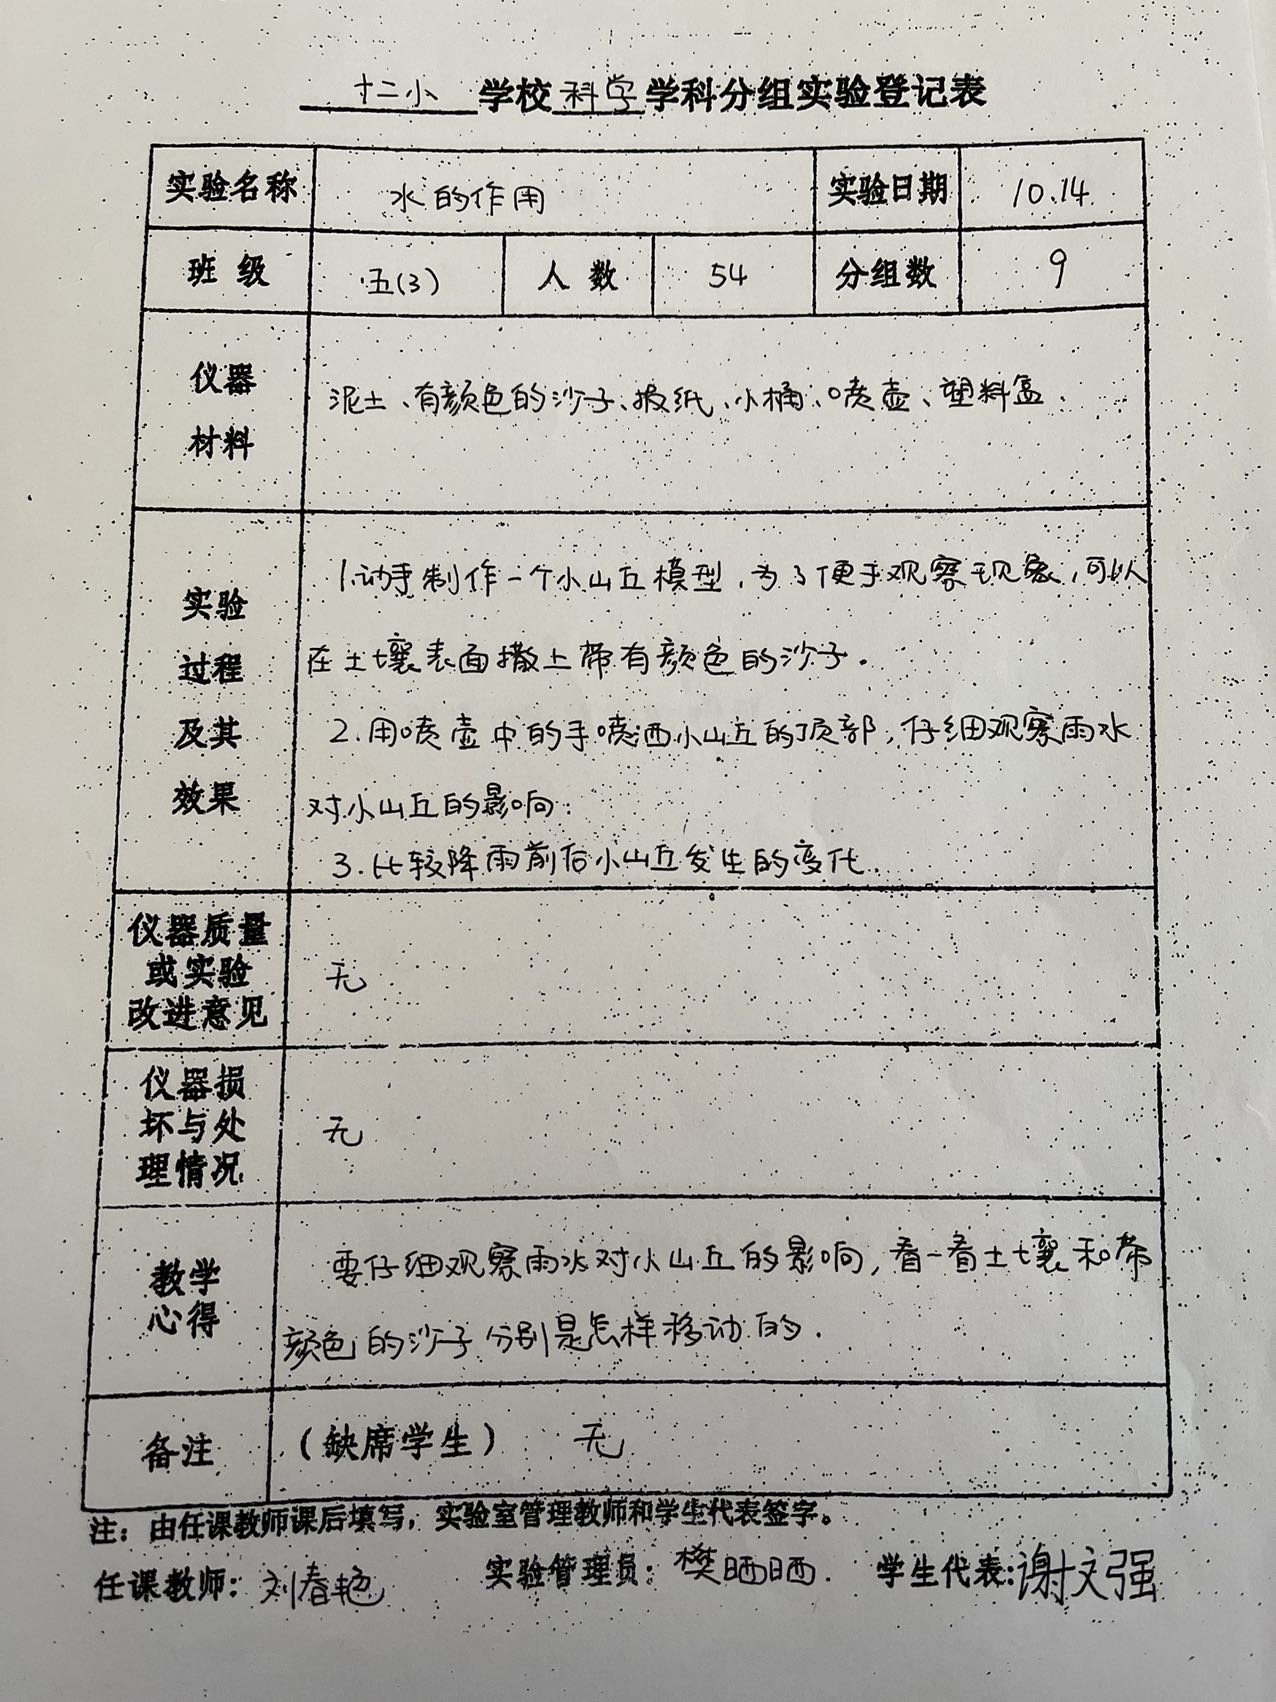 十二小 学校 科学 学科分组实验登记表
实验名称 水的作用 实验日期 10.14
班级 五(3) 人数 54 分组数 9
仪器
材料
泥土、有颜色的沙子、报纸、小桶、喷壶、塑料盒.
实验
过程
及其
效果
1.动手制作一个小山丘模型,为了便于观察现象,可以
在土壤表面撒上带有颜色的沙子。
2.用喷壶中的手喷洒小山丘的顶部,仔细观察雨水
对小山丘的影响.
3.比较降雨前后小山丘发生的变化.
仪器质量
或实验
改进意见
无
仪器损
坏与处
理情况
无
教学
心得
要仔细观察雨水对小山丘的影响,看一看土壤和带
颜色的沙子分别是怎样移动的.
备注 (缺席学生) 无
注:由任课教师课后填写,实验室管理教师和学生代表签字。
任课教师:刘春艳 实验管理员:樊晒晒. 学生代表:谢文强